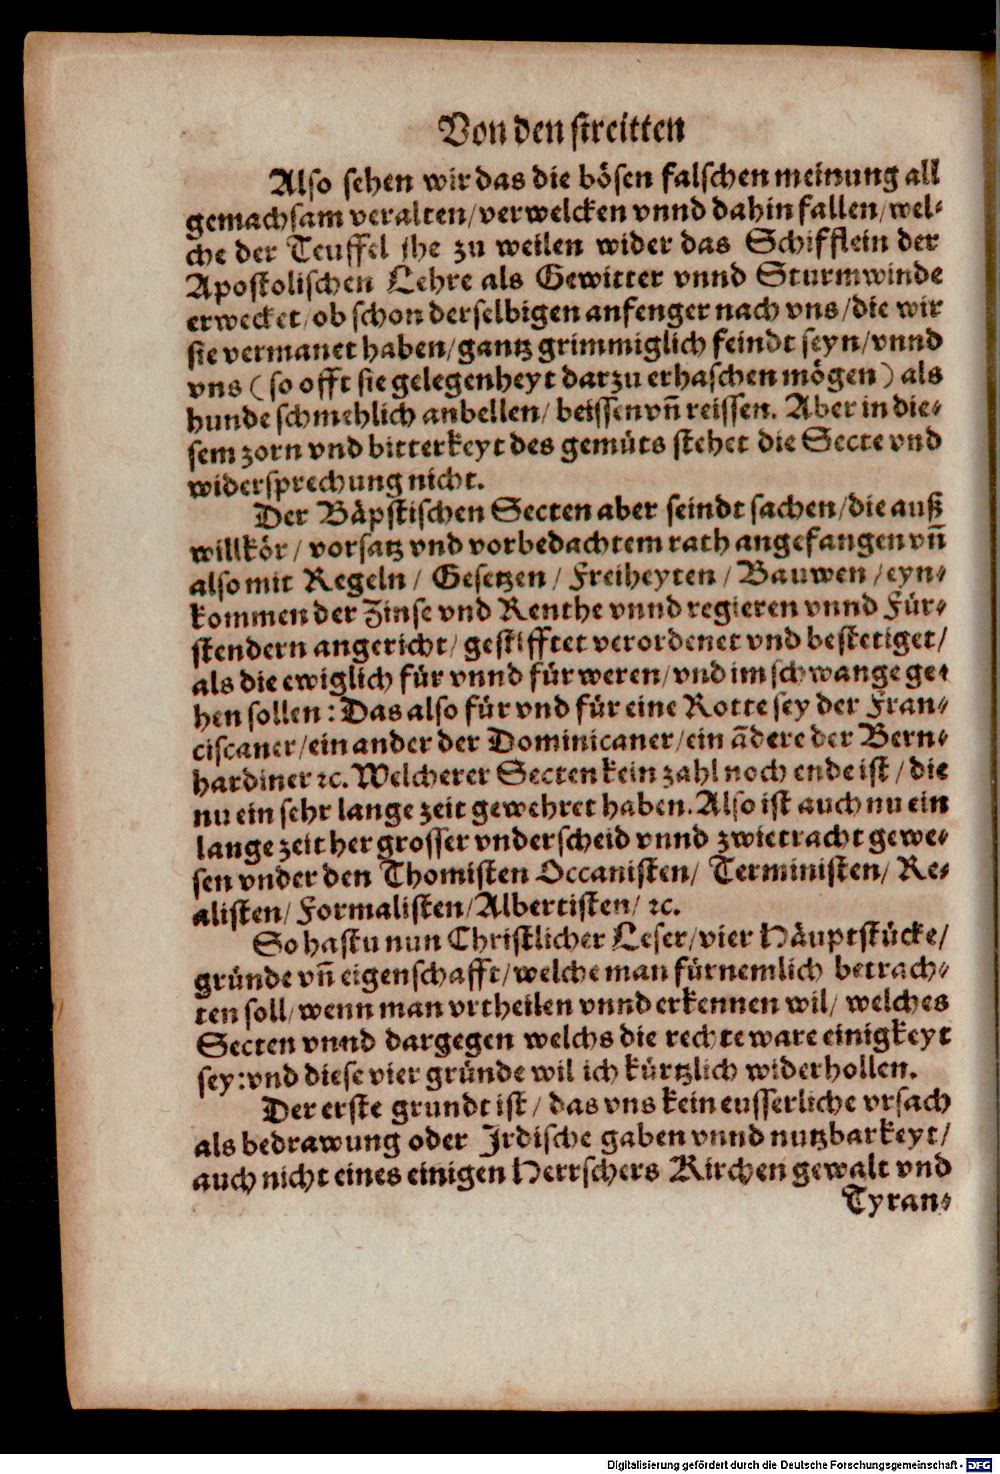 Von den streitten
Also sehen wir das die bösen falschen meinung all
gemachsam veralten/verwelcken vnnd dahin fallen/wel-
che der Teuffel jhe zu weilen wider das Schifflein der
Apostolischen Lehre als Gewitter vnnd Sturmwinde
erwecket/ob schon derselbigen anfenger nach vns/die wir
sie vermanet haben/gantz grimmiglich feindt seyn/vnnd
vns (so offt sie gelegenheyt darzu erhaschen mögen) als
hunde schmehlich anbellen/beissen vñ reissen. Aber in die-
sem zorn vnd bitterkeyt des gemüts stehet die Secte vnd
widersprechung nicht.
Der Bäpstischen Secten aber seindt sachen/die auß
willkör/ vorsatz vnd vorbedachtem rath angefangen vñ
also mit Regeln/ Gesetzen/ Freiheyten/ Bauwen/eyn-
kommen der Zinse vnd Renthe vnnd regieren vnnd Für-
stendern angericht/ gestifftet verordenet vnd bestetiget/
als die ewiglich für vnnd für weren/vnd im schwange ge-
hen sollen: Das also für vnd für eine Rotte sey der Fran-
ciscaner/ein ander der Dominicaner/ein ãdere der Bern-
hardiner ꝛc. Welcherer Secten kein zahl noch ende ist/die
nu ein sehr lange zeit gewehret haben. Also ist auch nu ein
lange zeit her grosser vnderscheid vnnd zwietracht gewe-
sen vnder den Thomisten Occanisten/ Terministen/ Re-
alisten/ Formalisten/Albertisten/ ꝛc.
So hastu nun Christlicher Leser/vier Häuptstücke/
gründe vñ eigenschafft/welche man fürnemlich betrach-
ten soll/wenn man vrtheilen vnnd erkennen wil/ welches
Secten vnnd dargegen welchs die rechte ware einigkeyt
sey:vnd diese vier gründe wil ich kürtzlich widerhollen.
Der erste grundt ist/ das vns kein eusserliche vrsach
als bedrawung oder Irdische gaben vnnd nutzbarkeyt/
auch nicht eines einigen Herrschers Kirchen gewalt vnd
Tyran-
Digitalisierung gefördert durch die Deutsche Forschungsgemeinschaft - DFG